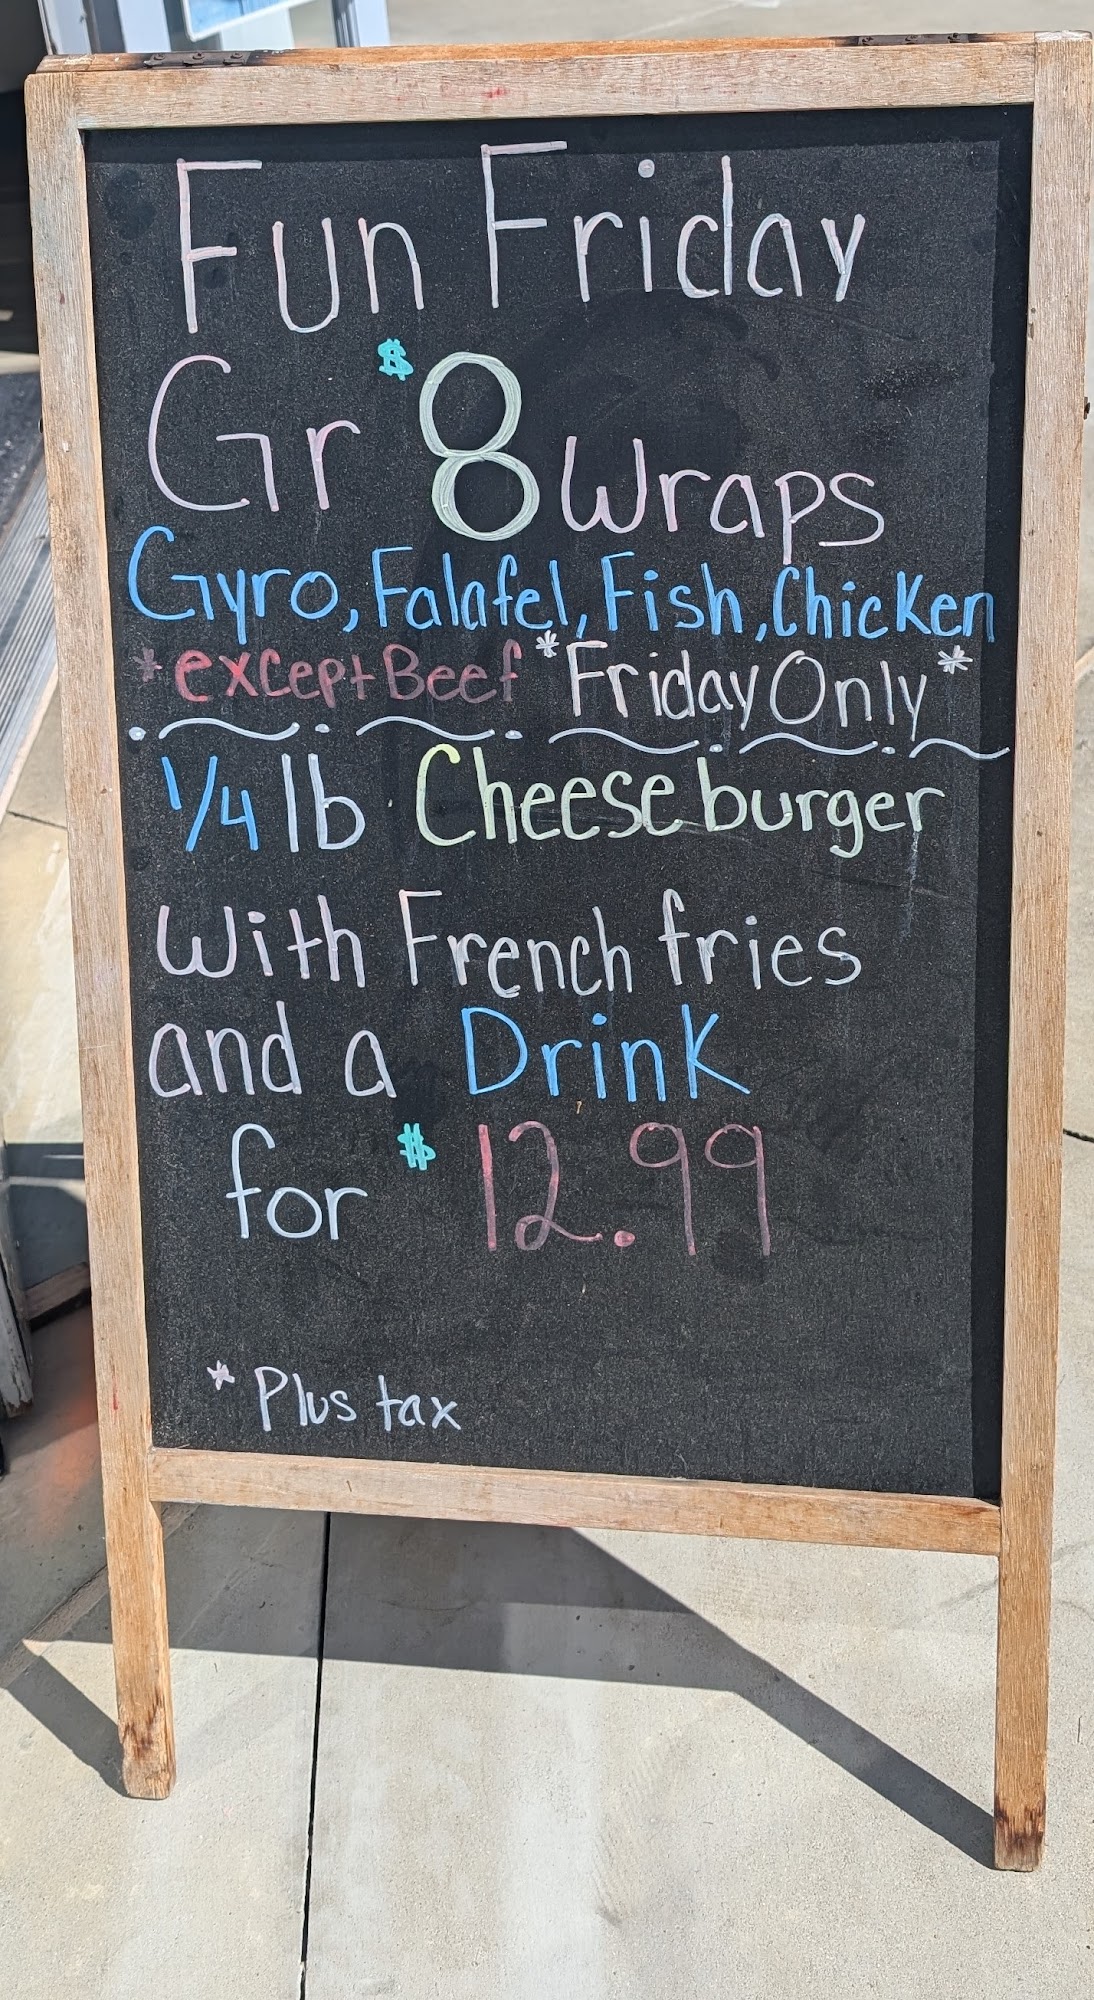 Fun Friday
Gr $8 Wraps
Gyro, Falafel, Fish, Chicken
*except Beef *Friday Only*
1/4 lb Cheeseburger
With French fries
and a Drink
for $12.99
*Plus tax